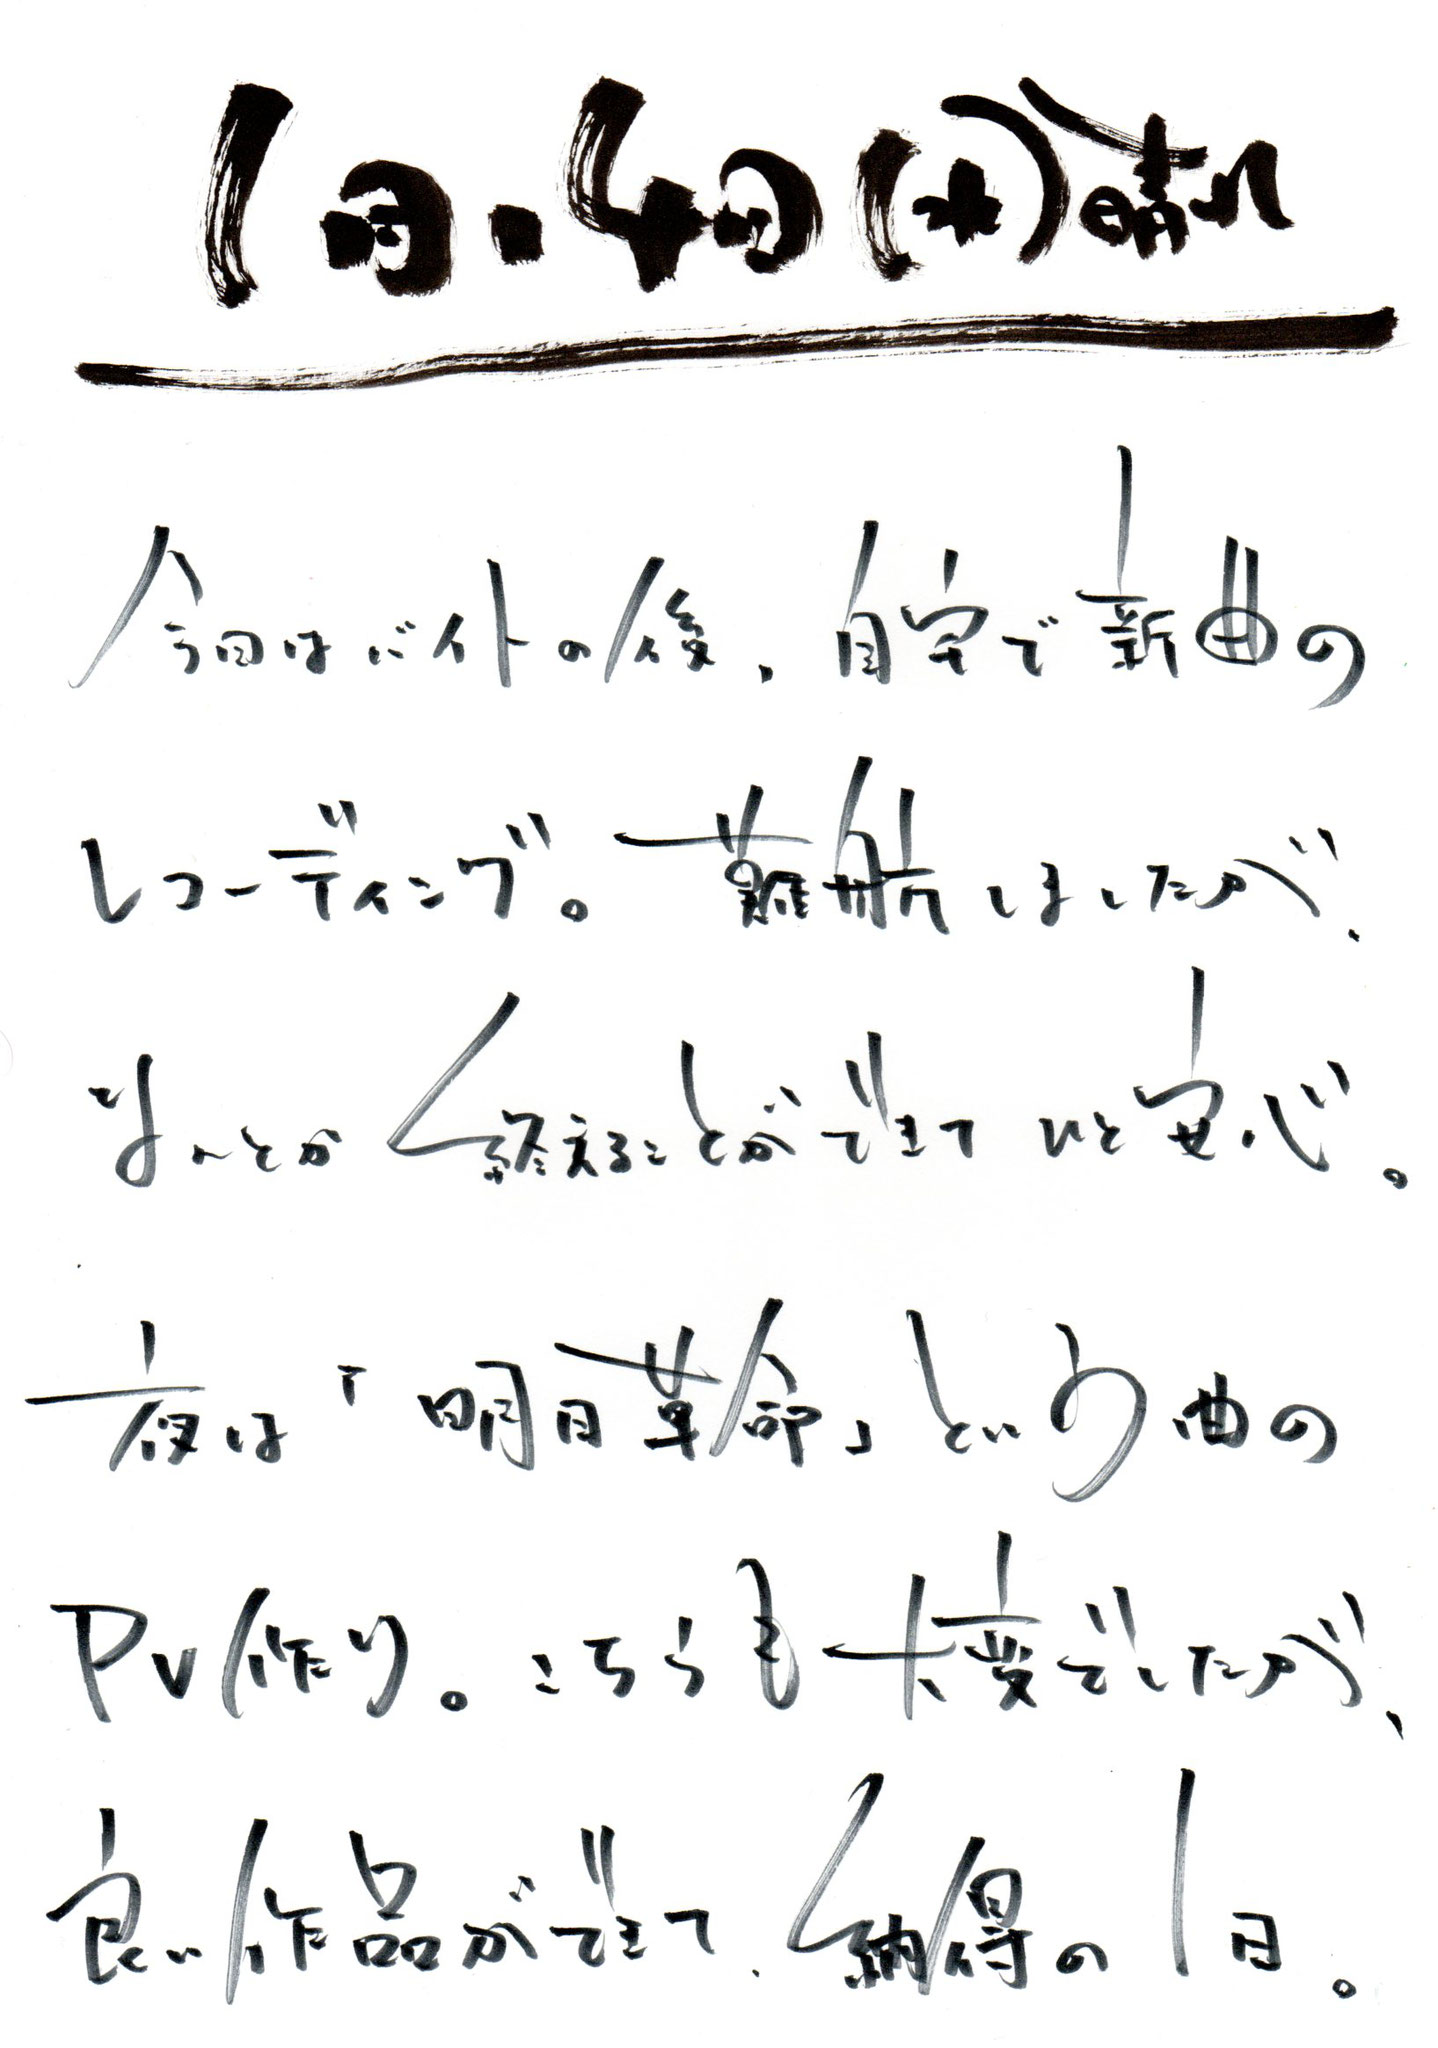 1月・4日(水)晴れ
今日はバイトの後、自宅で新曲の
レコーディング。難航しましたが、
なんとか終えることができてひと安心。
夜は「明日革命」という曲の
PV作り。こちらも大変でしたが、
良い作品ができて、納得の1日。